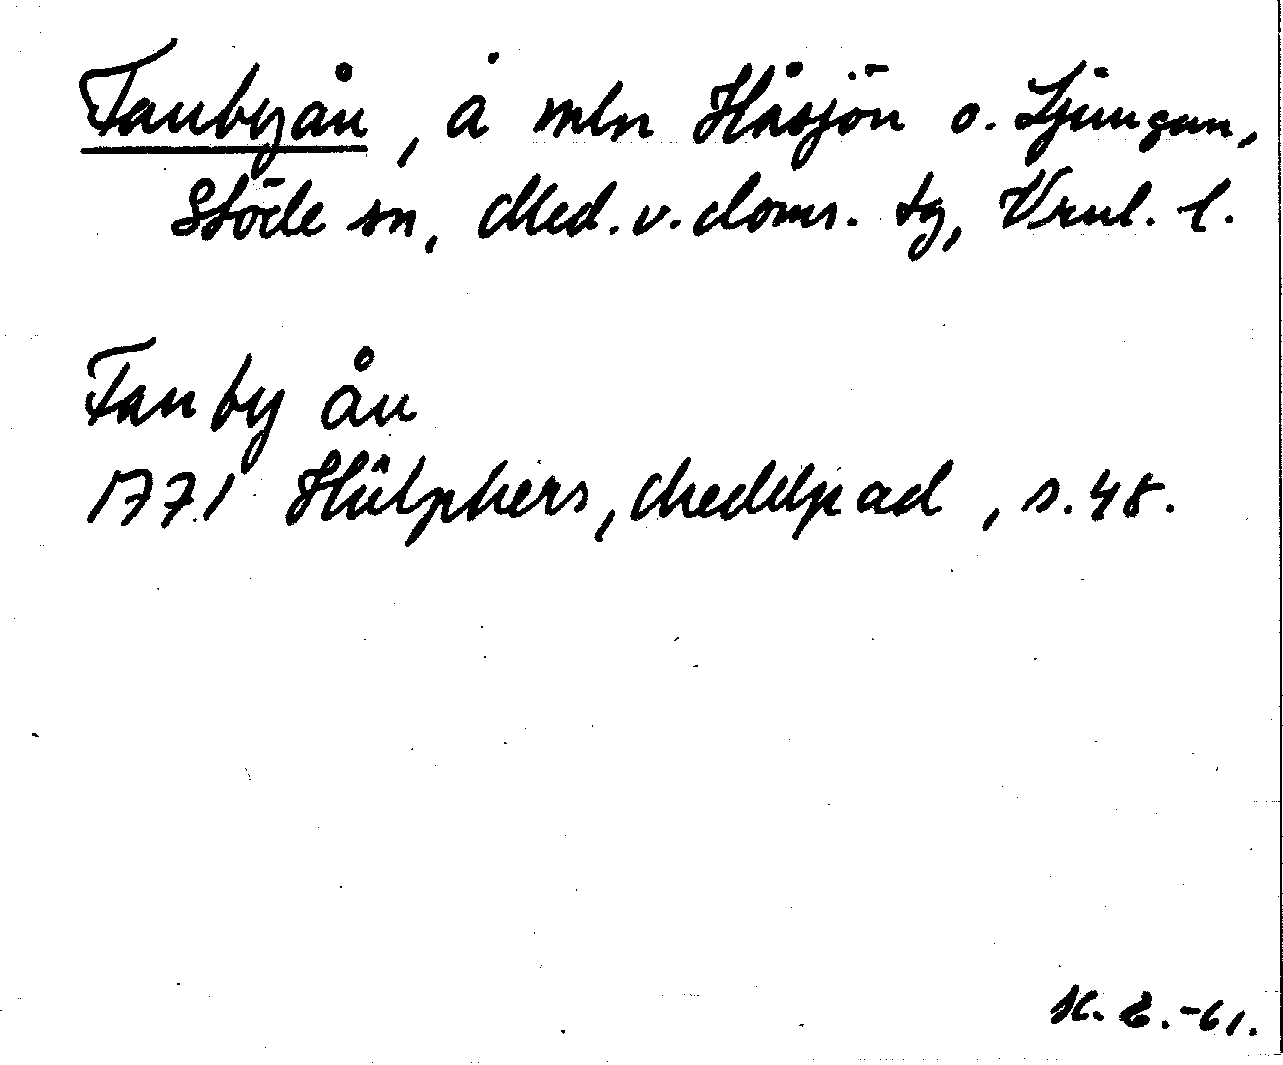 Fanbyån, å mln Håsjön o. Ljungan,
Stöde sn, Med. v. doms. tg, Vrnl. l.
Fanby ån
1771 Hülphers, Medelpad, s. 48.
K. E. -61.